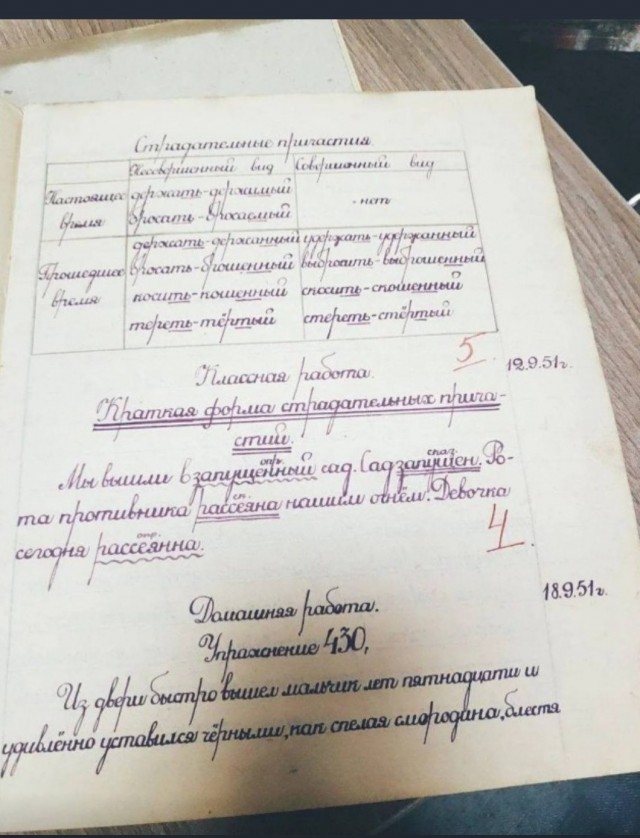 Страдательные причастия.
Несовершенный вид Совершенный вид
Настоящее время
держать-держимый
бросать-бросаемый
- нет
Прошедшее время
держать-держанный удержать-удержанный
бросать-брошенный выбросить-выброшенный
косить-кошенный скосить-скошенный
тереть-тёртый стереть-стёртый
5
Классная работа. 12.9.51г.
Краткая форма страдательных прича-
стий.
опр. сказ.
Мы вышли в запущенный сад. Сад запущен. Ро-
ск.
та противника рассеяна нашим огнём. Девочка
опр.
сегодня рассеянна.
4
18.9.51г.
Домашняя работа.
Упражнение 430,
Из двери быстро вышел мальчик лет пятнадцати и
удивлённо уставился чёрными, как спелая смородина, блестя